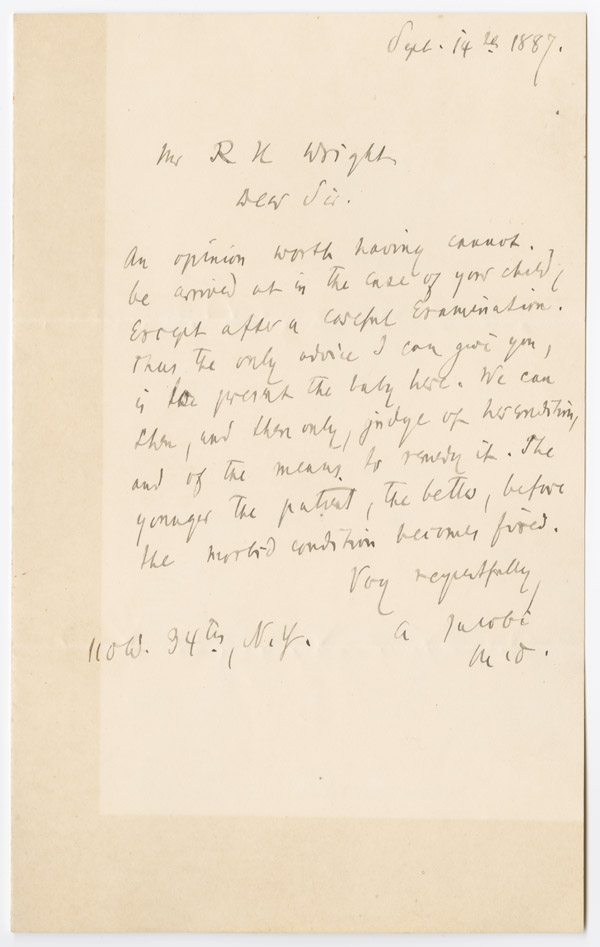 Sept. 14th 1887.
Mr R H Wright
Dear Sir.
An opinion worth having cannot.
be arrived at in the case of your child,
Except after a careful Examination.
Thus the only advice I can give you,
is to present the baby here. We can
then, and then only, judge of her condition,
and of the means to remedy it. The
younger the patient, the better, before
the morbid condition becomes fixed.
Very respectfully,
A Jacobi
M.D.
110 W. 34th, N.Y.